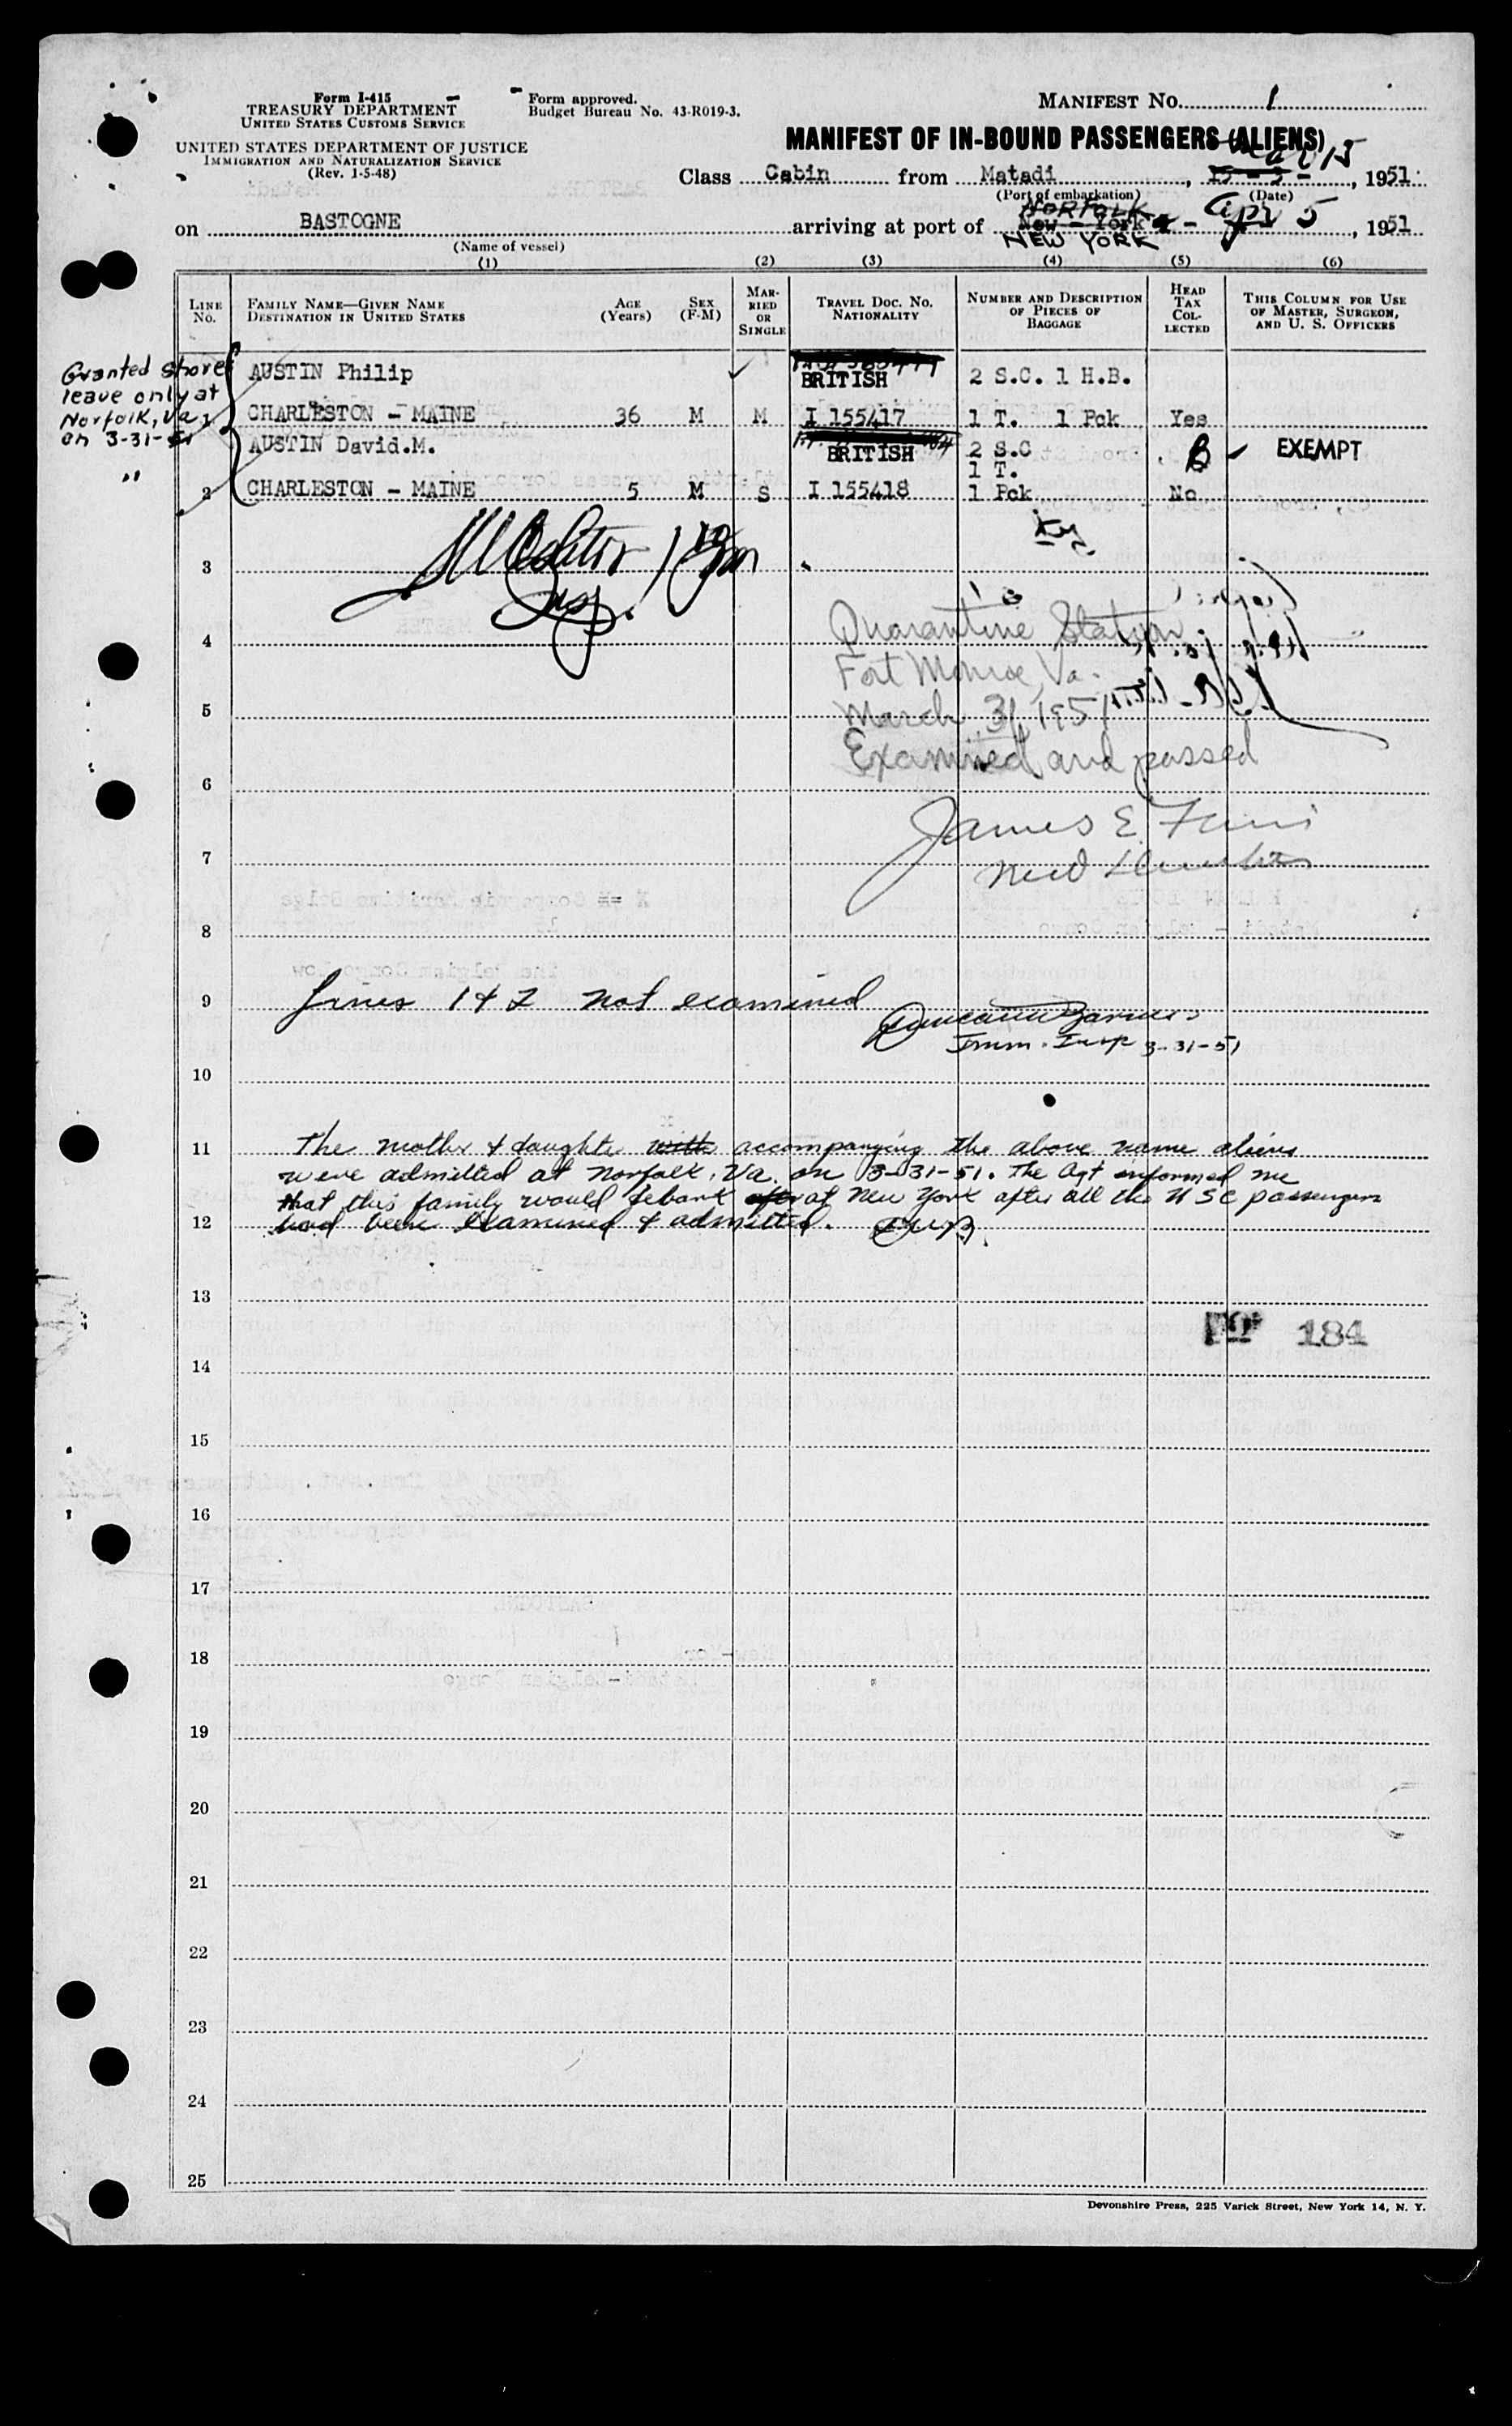 Form I-415
TREASURY DEPARTMENT
UNITED STATES CUSTOMS SERVICE
UNITED STATES DEPARTMENT OF JUSTICE
IMMIGRATION AND NATURALIZATION SERVICE
(Rev. 1-5-48)
Form approved.
Budget Bureau No. 43-R019-3.
MANIFEST No. 1
MANIFEST OF IN-BOUND PASSENGERS (ALIENS)
Class Cabin from Matadi, Mar 15, 1951
(Port of embarkation) (Date)
on BASTOGNE arriving at port of NORFOLK New - York NEW YORK Apr 5, 1951
(Name of vessel)
(1) (2) (3) (4) (5) (6)
LINE No. FAMILY NAME—GIVEN NAME DESTINATION IN UNITED STATES AGE (Years) SEX (F-M) MARRIED OR SINGLE TRAVEL DOC. NO. NATIONALITY NUMBER AND DESCRIPTION OF PIECES OF BAGGAGE HEAD TAX COLLECTED THIS COLUMN FOR USE OF MASTER, SURGEON, AND U. S. OFFICERS
Granted shore leave only at Norfolk, Va on 3-31-51
AUSTIN Philip BRITISH 2 S.C. 1 H.B.
1 CHARLESTON - MAINE 36 M M I 155417 1 T. 1 Pck Yes
AUSTIN David.M. BRITISH 2 S.C 1 T. EXEMPT
"
2 CHARLESTON - MAINE 5 M S I 155418 1 Pck No
3
4 Quarantine Station
Fort Monroe, Va.
5 March 31, 1951
Examined and passed
6
James E.
7
8
9 Lines 1 & 2 not examined
Imm. Insp 3-31-51
10
11 The mother & daughter with accompanying the above name aliens
were admitted at Norfolk, Va. on 3-31-51. The Agt informed me
that this family would debark after at New York after all the USC passengers
12 had been examined & admitted.
13
184
14
15
16
17
18
19
20
21
22
23
24
25
Devonshire Press, 225 Varick Street, New York 14, N. Y.